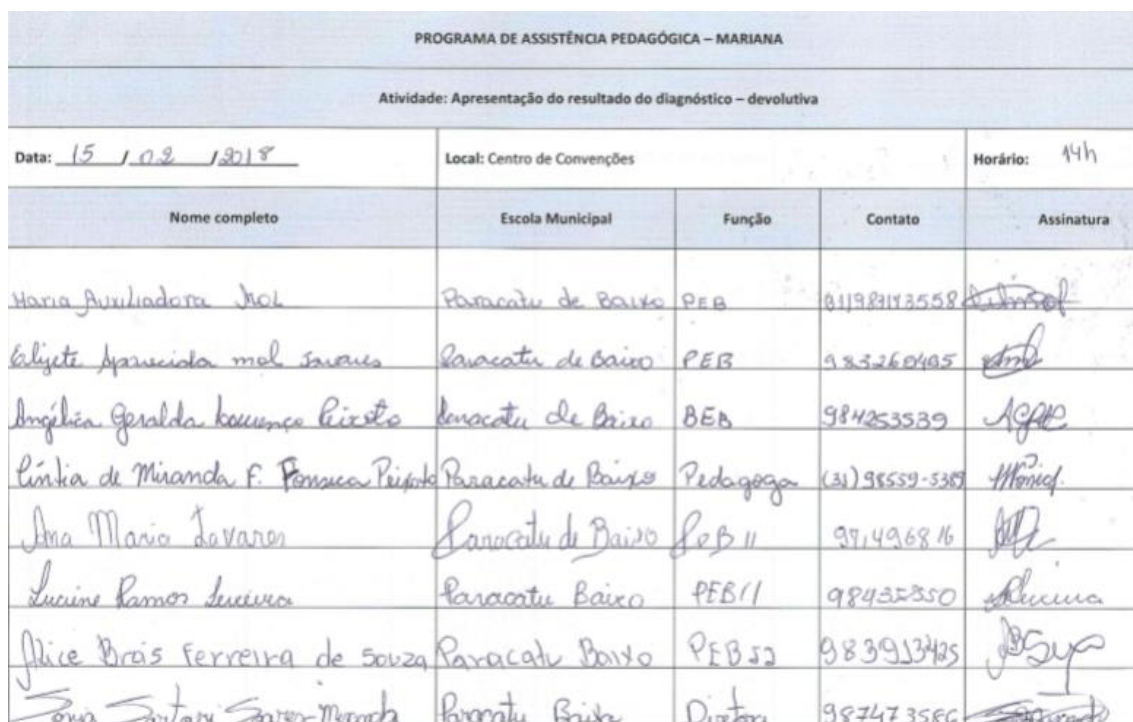 PROGRAMA DE ASSISTÊNCIA PEDAGÓGICA – MARIANA
Atividade: Apresentação do resultado do diagnóstico – devolutiva
Data: 15 / 02 / 2018 Local: Centro de Convenções Horário: 14h
Nome completo Escola Municipal Função Contato Assinatura
Maria Auxiliadora Mol Paracatu de Baixo PEB
Elizete Aparecida mol Tavares Paracatu de Baixo PEB 983260405
Angélica Geralda Lourenço Peixoto Paracatu de Baixo BEB 984253539
Cíntia de Miranda F. Fonseca Peixoto Paracatu de Baixo Pedagoga (31) 98559-5389
Ana Maria Tavares Paracatu de Baixo PeB II 97,496816
Ramos Paracatu Baixo PEB II
Alice Brás Ferreira de Souza Paracatu Baixo PEB II 983913425
Sonia Sartori Miranda Paracatu Baixo Diretora 987473586